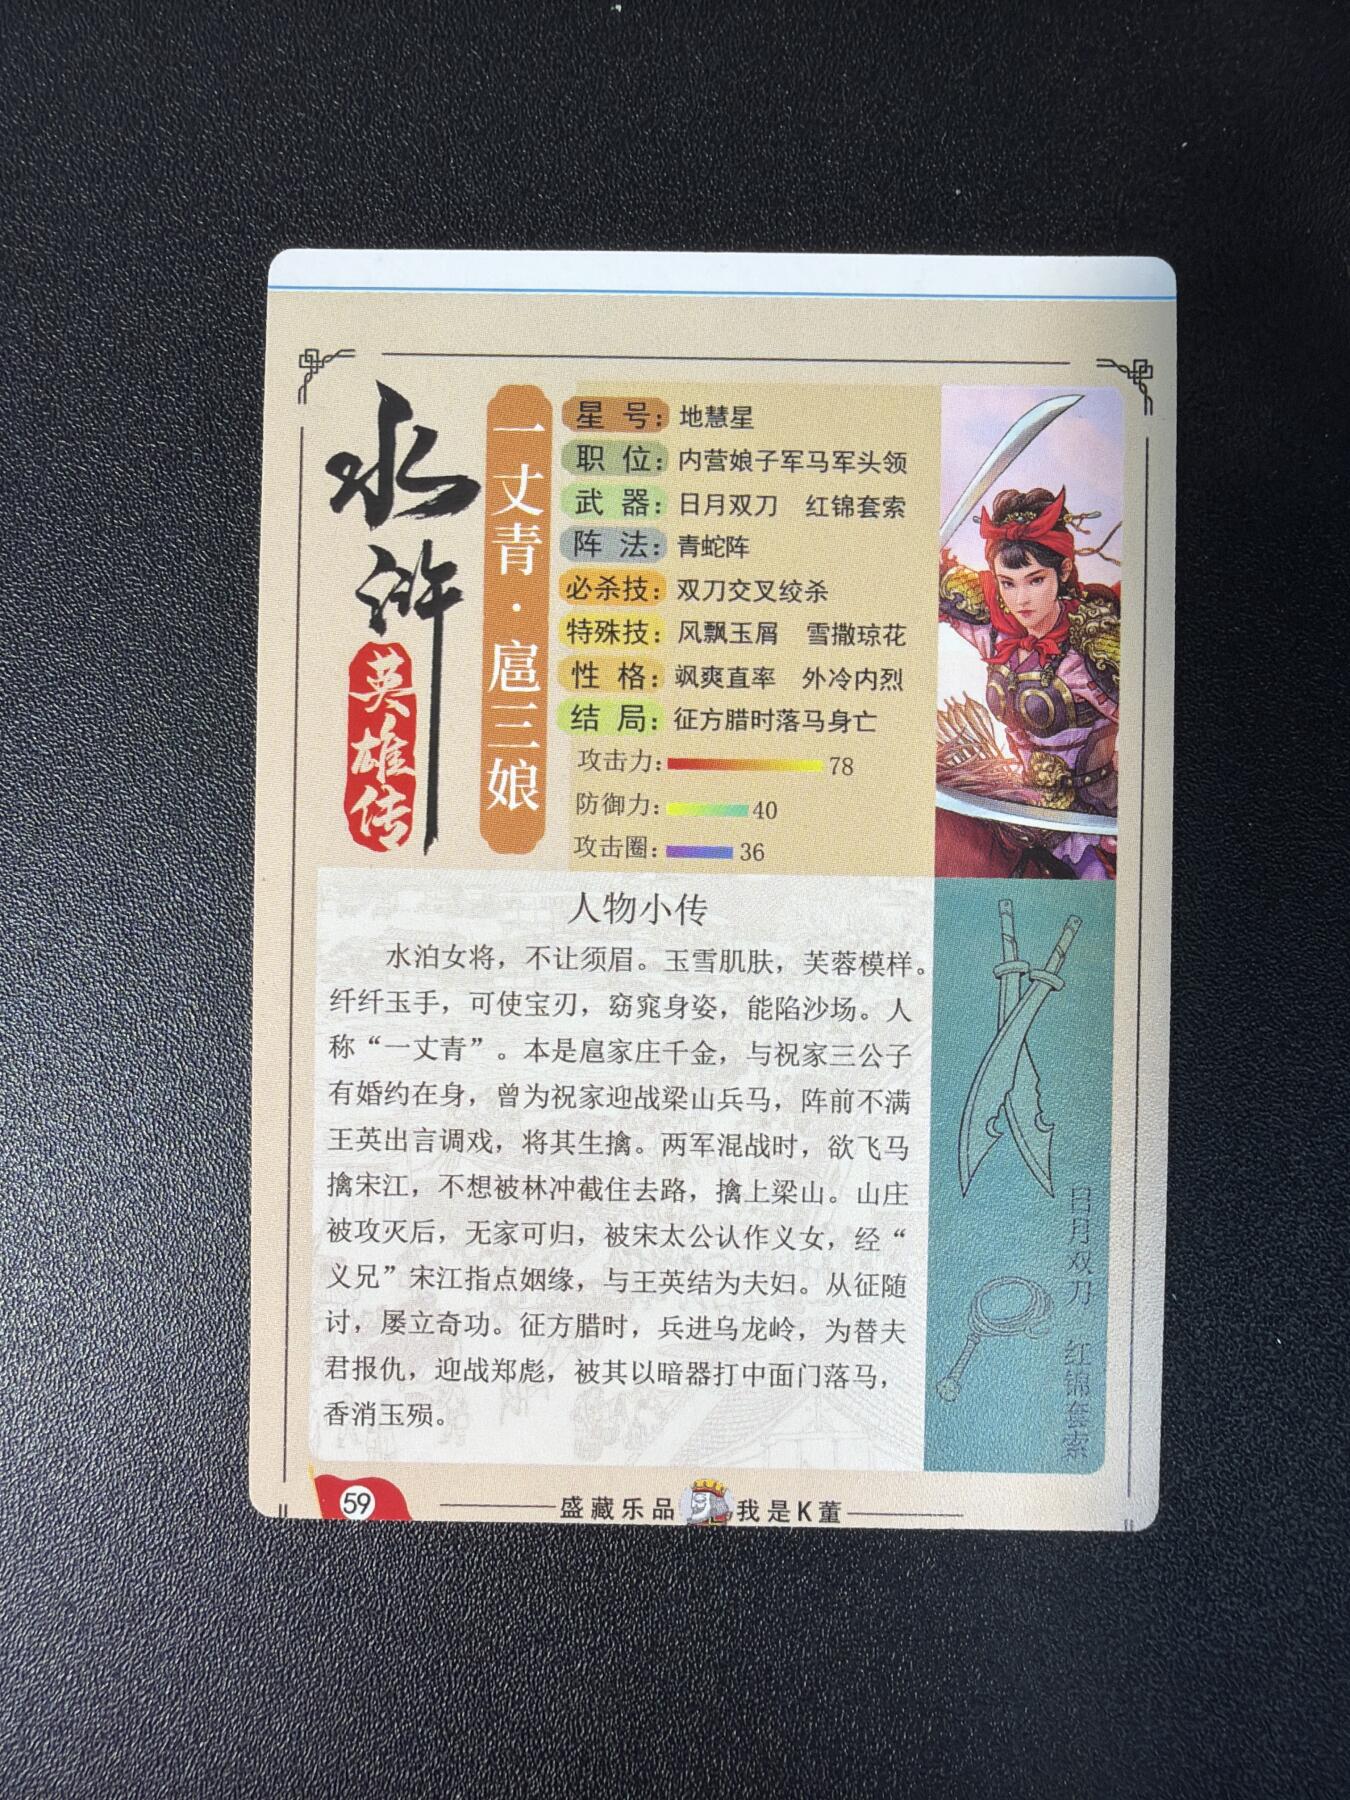 水浒
英雄传
一丈青·扈三娘
星号：地慧星
职位：内营娘子军马军头领
武器：日月双刀 红锦套索
阵法：青蛇阵
必杀技：双刀交叉绞杀
特殊技：风飘玉屑 雪撒琼花
性格：飒爽直率 外冷内烈
结局：征方腊时落马身亡
攻击力：78
防御力：40
攻击圈：36
人物小传
水泊女将，不让须眉。玉雪肌肤，芙蓉模样。
纤纤玉手，可使宝刃，窈窕身姿，能陷沙场。人
称“一丈青”。本是扈家庄千金，与祝家三公子
有婚约在身，曾为祝家迎战梁山兵马，阵前不满
王英出言调戏，将其生擒。两军混战时，欲飞马
擒宋江，不想被林冲截住去路，擒上梁山。山庄
被攻灭后，无家可归，被宋太公认作义女，经“
义兄”宋江指点姻缘，与王英结为夫妇。从征随
讨，屡立奇功。征方腊时，兵进乌龙岭，为替夫
君报仇，迎战郑彪，被其以暗器打中面门落马，
香消玉殒。
日月双刀
红锦套索
59
盛藏乐品 我是K董